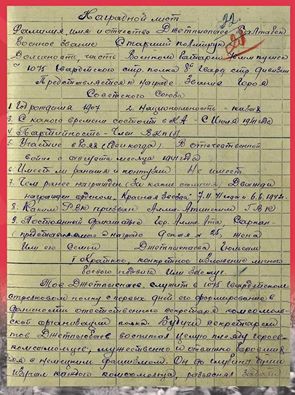 Наградной лист
Фамилия, имя и отчество Джетписбаев Толтай
Военное звание Старший политрук
Должность, часть Военный
1075 гвардейского стр. полка 8 гвард. стр. дивизии
Представляется к званию Героя
Советского Союза
1. Год рождения 1907 2. Национальность - казах
3. С какого времени состоит в КА - С июля 1941 года
4. Партийность - Член ВКП(б)
5. Участие в боях (где и когда) В отечественной
войне с августа месяца 1941 года
6. Имеет ли ранения и контузии Не имеет
7. Чем ранее награжден (за какие отличия) Дважды
награжден орденом "Красная звезда"
8. Каким РВК призван Алма-Атинским ГВК
9. Постоянный домашний адрес
представляемого к награде
и его семьи Джетписбаева
1. Краткое, конкретное изложение личного
боевого подвига или заслуг
Тов. Джетписбаев, служит в 1075 гвардейском
стрелковом полку с первых дней его формирования в
должности ответственного секретаря комсомоль-
ской организации полка. Будучи секретарем
тов. Джетписбаев воспитал целую плеяду героев-
комсомольцев, мужественно и отважно
с немецким фашизмом. Он
каждого комсомольца, разъясняя